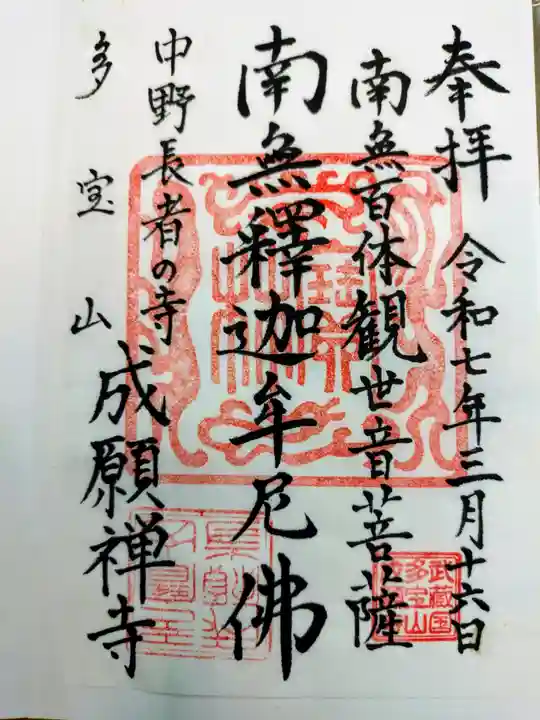 奉拝 令和七年三月十六日
南無百体観世音菩薩
南無釋迦牟尼佛
中野長者の寺
多宝山 成願禅寺
武蔵国
多宝山